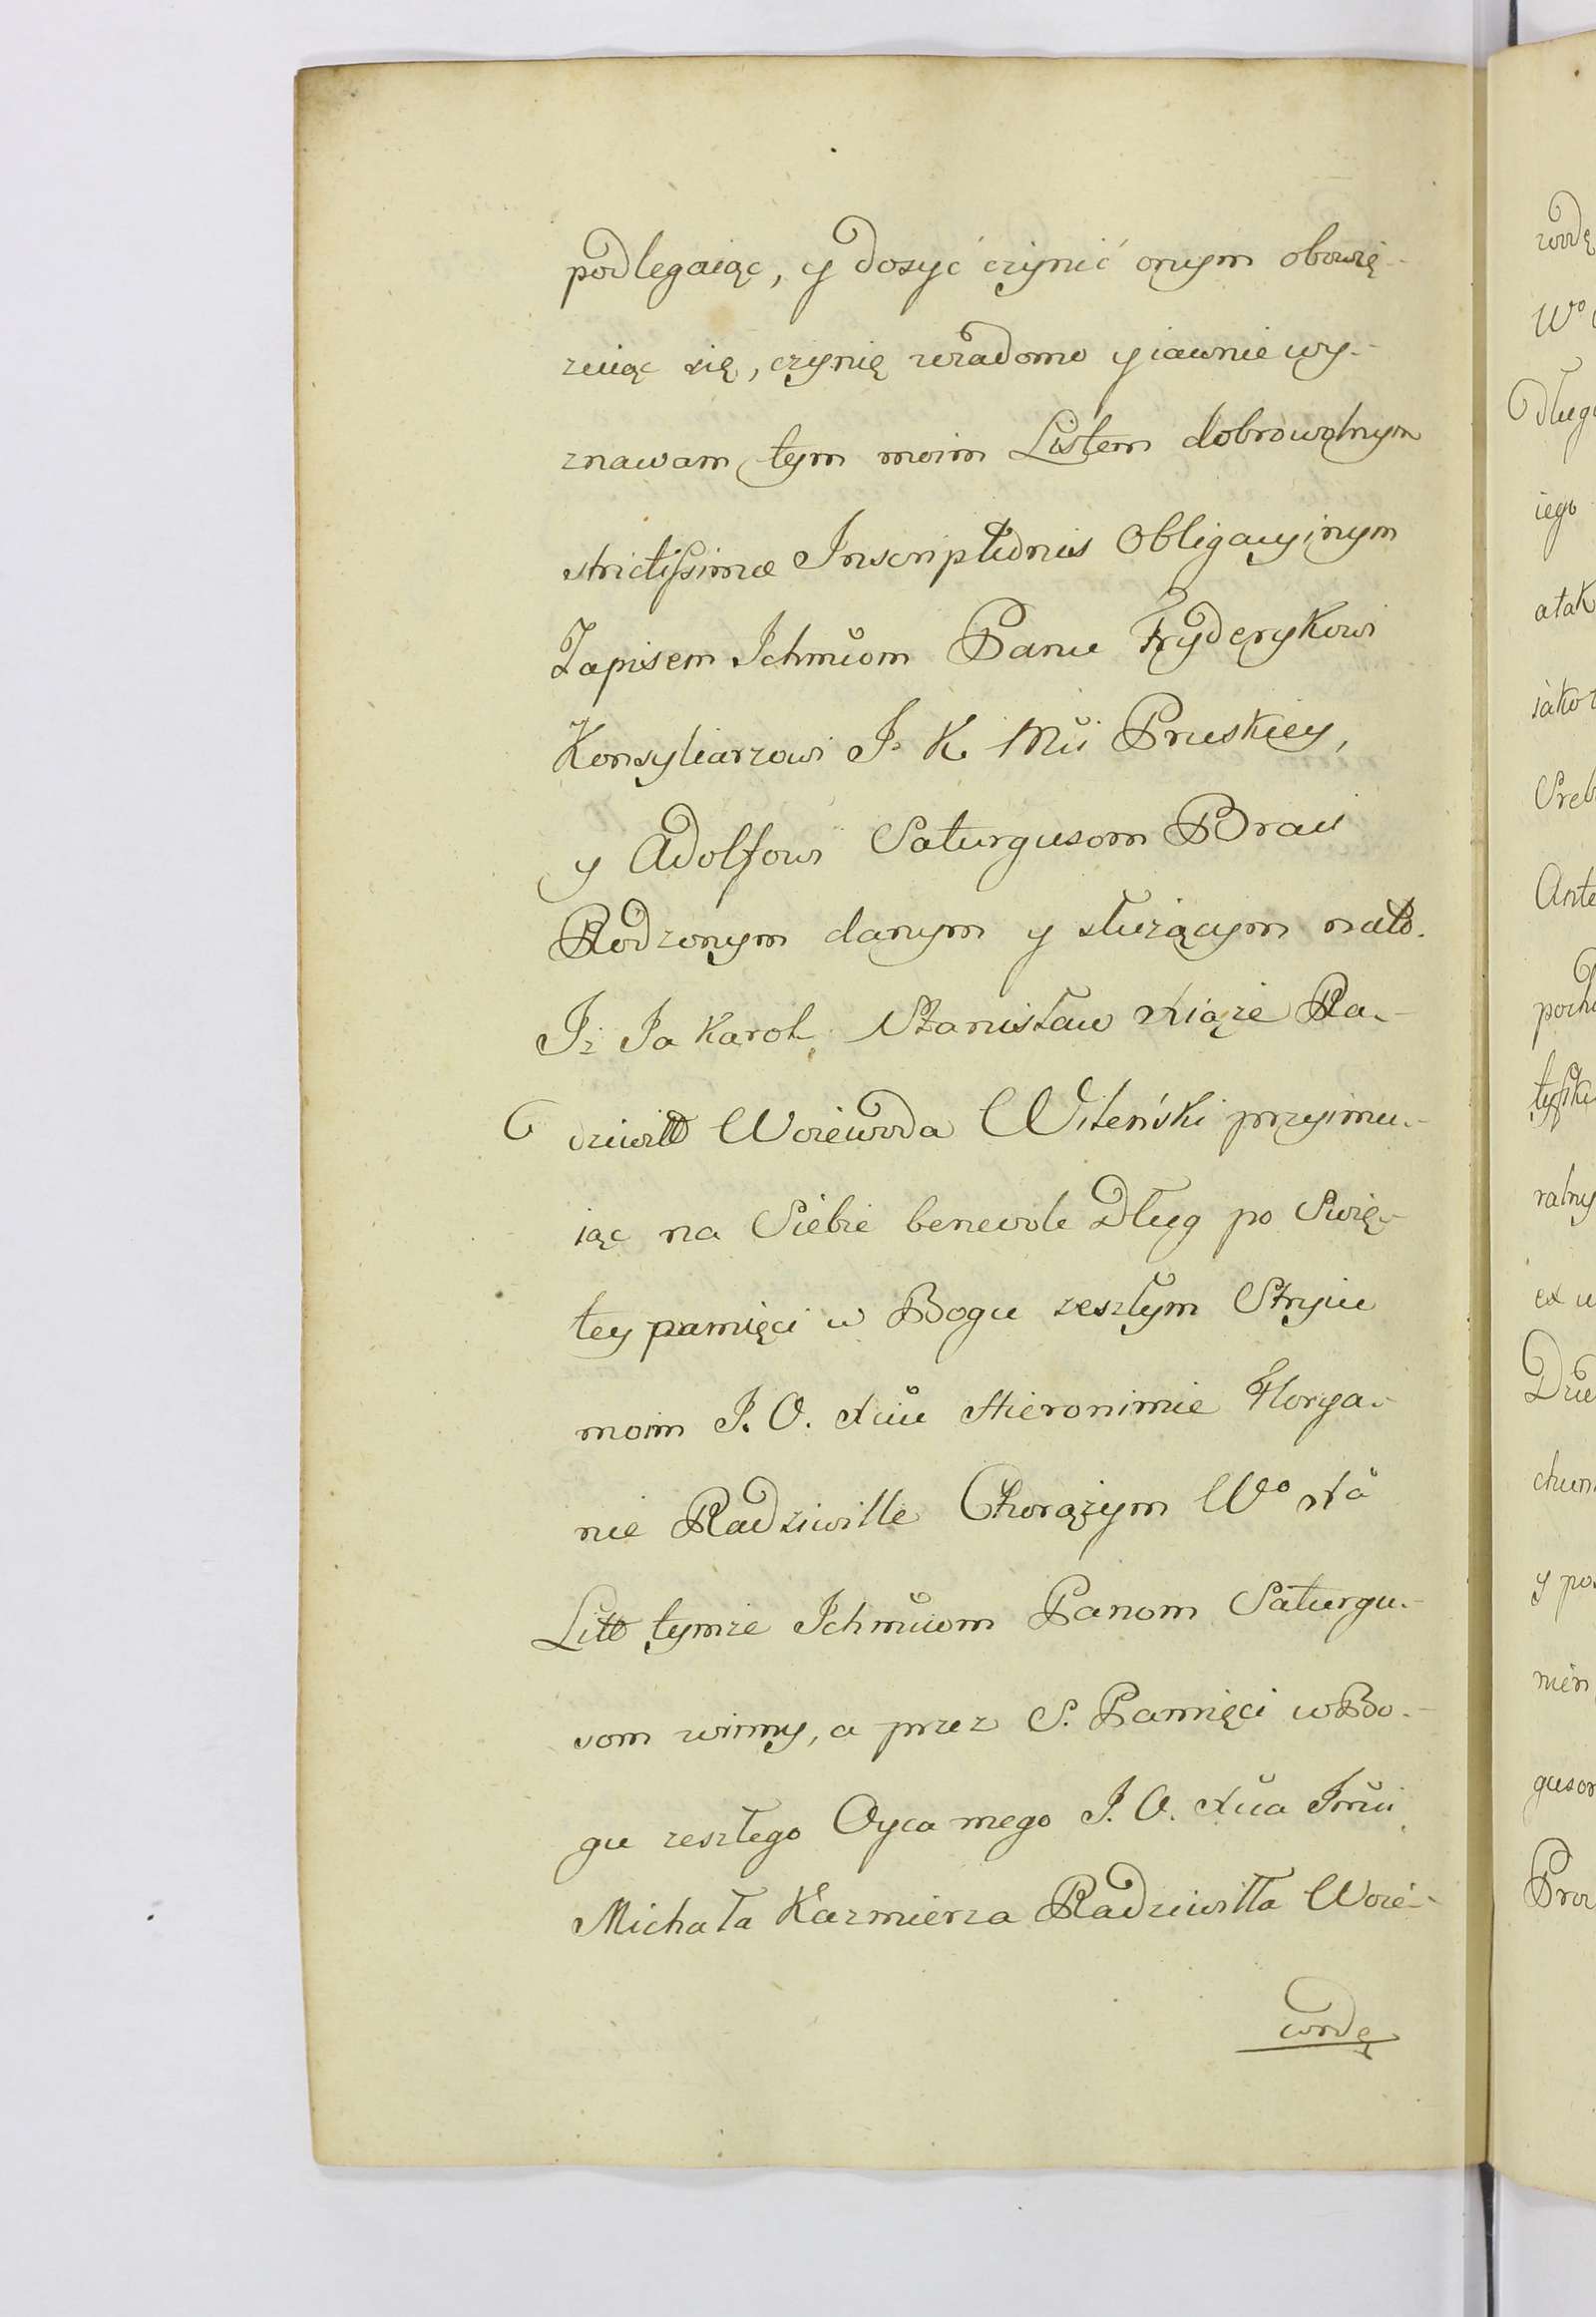 podlegaiąc, y dosyć czynić onym obowię-
zuiąc się, czynię wiadomo y iawnie wy-
znawam tym moim Listem dobrowolnym
strictissimæ Inscriptionis Obligacyinym
Zapisem Ichmćiom Panu Fryderykowi
Konsyliarzowi J. K. Mći Pruskiey,
y Adolfowi Saturgusom Braci
Rodzonym danym y służącym na to.
Iż Ja Karol Stanisław Xiąże Ra-
dziwiłł Woiewoda Wileński przyimu-
iąc na Siebie benevole Dług po Swię-
tey pamięci w Bogu zeszłym Stryiu
moim J. O. Xciu Hieronimie Florya-
nie Radziwille Chorążym Wo Xa
Litt tymże Ichmćiom Panom Saturgu-
som winny, a przez S. Pamięci w Bo-
gu zeszłego Oyca mego J. O. Xcia Jmći
Michała Kazmierza Radziwiłła Woie-
wodę
wodę
Wo
Dług
iego
a tak
iako
Sreb
Ante
poch
ralny
ex
chun
y po
gusom